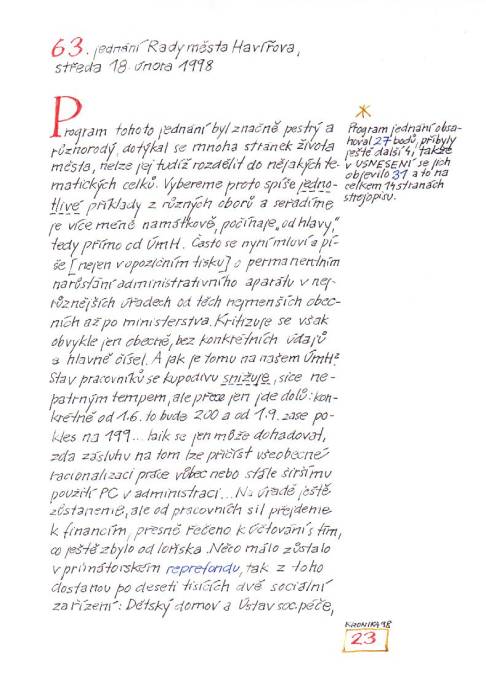 63. jednání Rady města Havířova,
středa 18. února 1998
Program tohoto jednání byl značně pestrý a
různorodý, dotýkal se mnoha stránek života
města, nelze jej tudíž rozdělit do nějakých te-
matických celků. Vybereme proto spíše jedno-
tlivé příklady z různých oborů a seřadíme
je více méně namátkově, počínaje „od hlavy,"
tedy přímo od ÚmH. Často se nyní mluví a pí-
še [nejen v opozičním tisku] o permanentním
narůstání administrativního aparátu v nej-
různějších úřadech od těch nejmenších obec-
ních až po ministerstva. Kritizuje se však
obvykle jen obecně, bez konkrétních údajů
a hlavně čísel. A jak je tomu na našem ÚmH?
Stav pracovníků se kupodivu snižuje, sice ne-
patrným tempem, ale přece jen jde dolů: kon-
krétně od 1.6. to bude 200 a od 1.9. zase po-
kles na 199... laik se jen může dohadovat,
zda zásluhu na tom lze přičíst všeobecné
racionalizaci práce vůbec nebo stále širšímu
použití PC v administraci... Na úřadě ještě
zůstaneme, ale od pracovních sil přejdeme
k financím, přesně řečeno k účtování s tím,
co ještě zbylo od loňska. Něco málo zůstalo
v primátorském reprefondu, tak z toho
dostanou po deseti tisících dvě sociální
zařízení: Dětský domov a Ústav soc. péče,
Program jednání obsa-
hoval 27 bodů, přibyly
ještě další 4, takže
v USNESENÍ se jich
objevilo 31 a to na
celkem 14 stranách
strojopisu.
KRONIKA 98
23